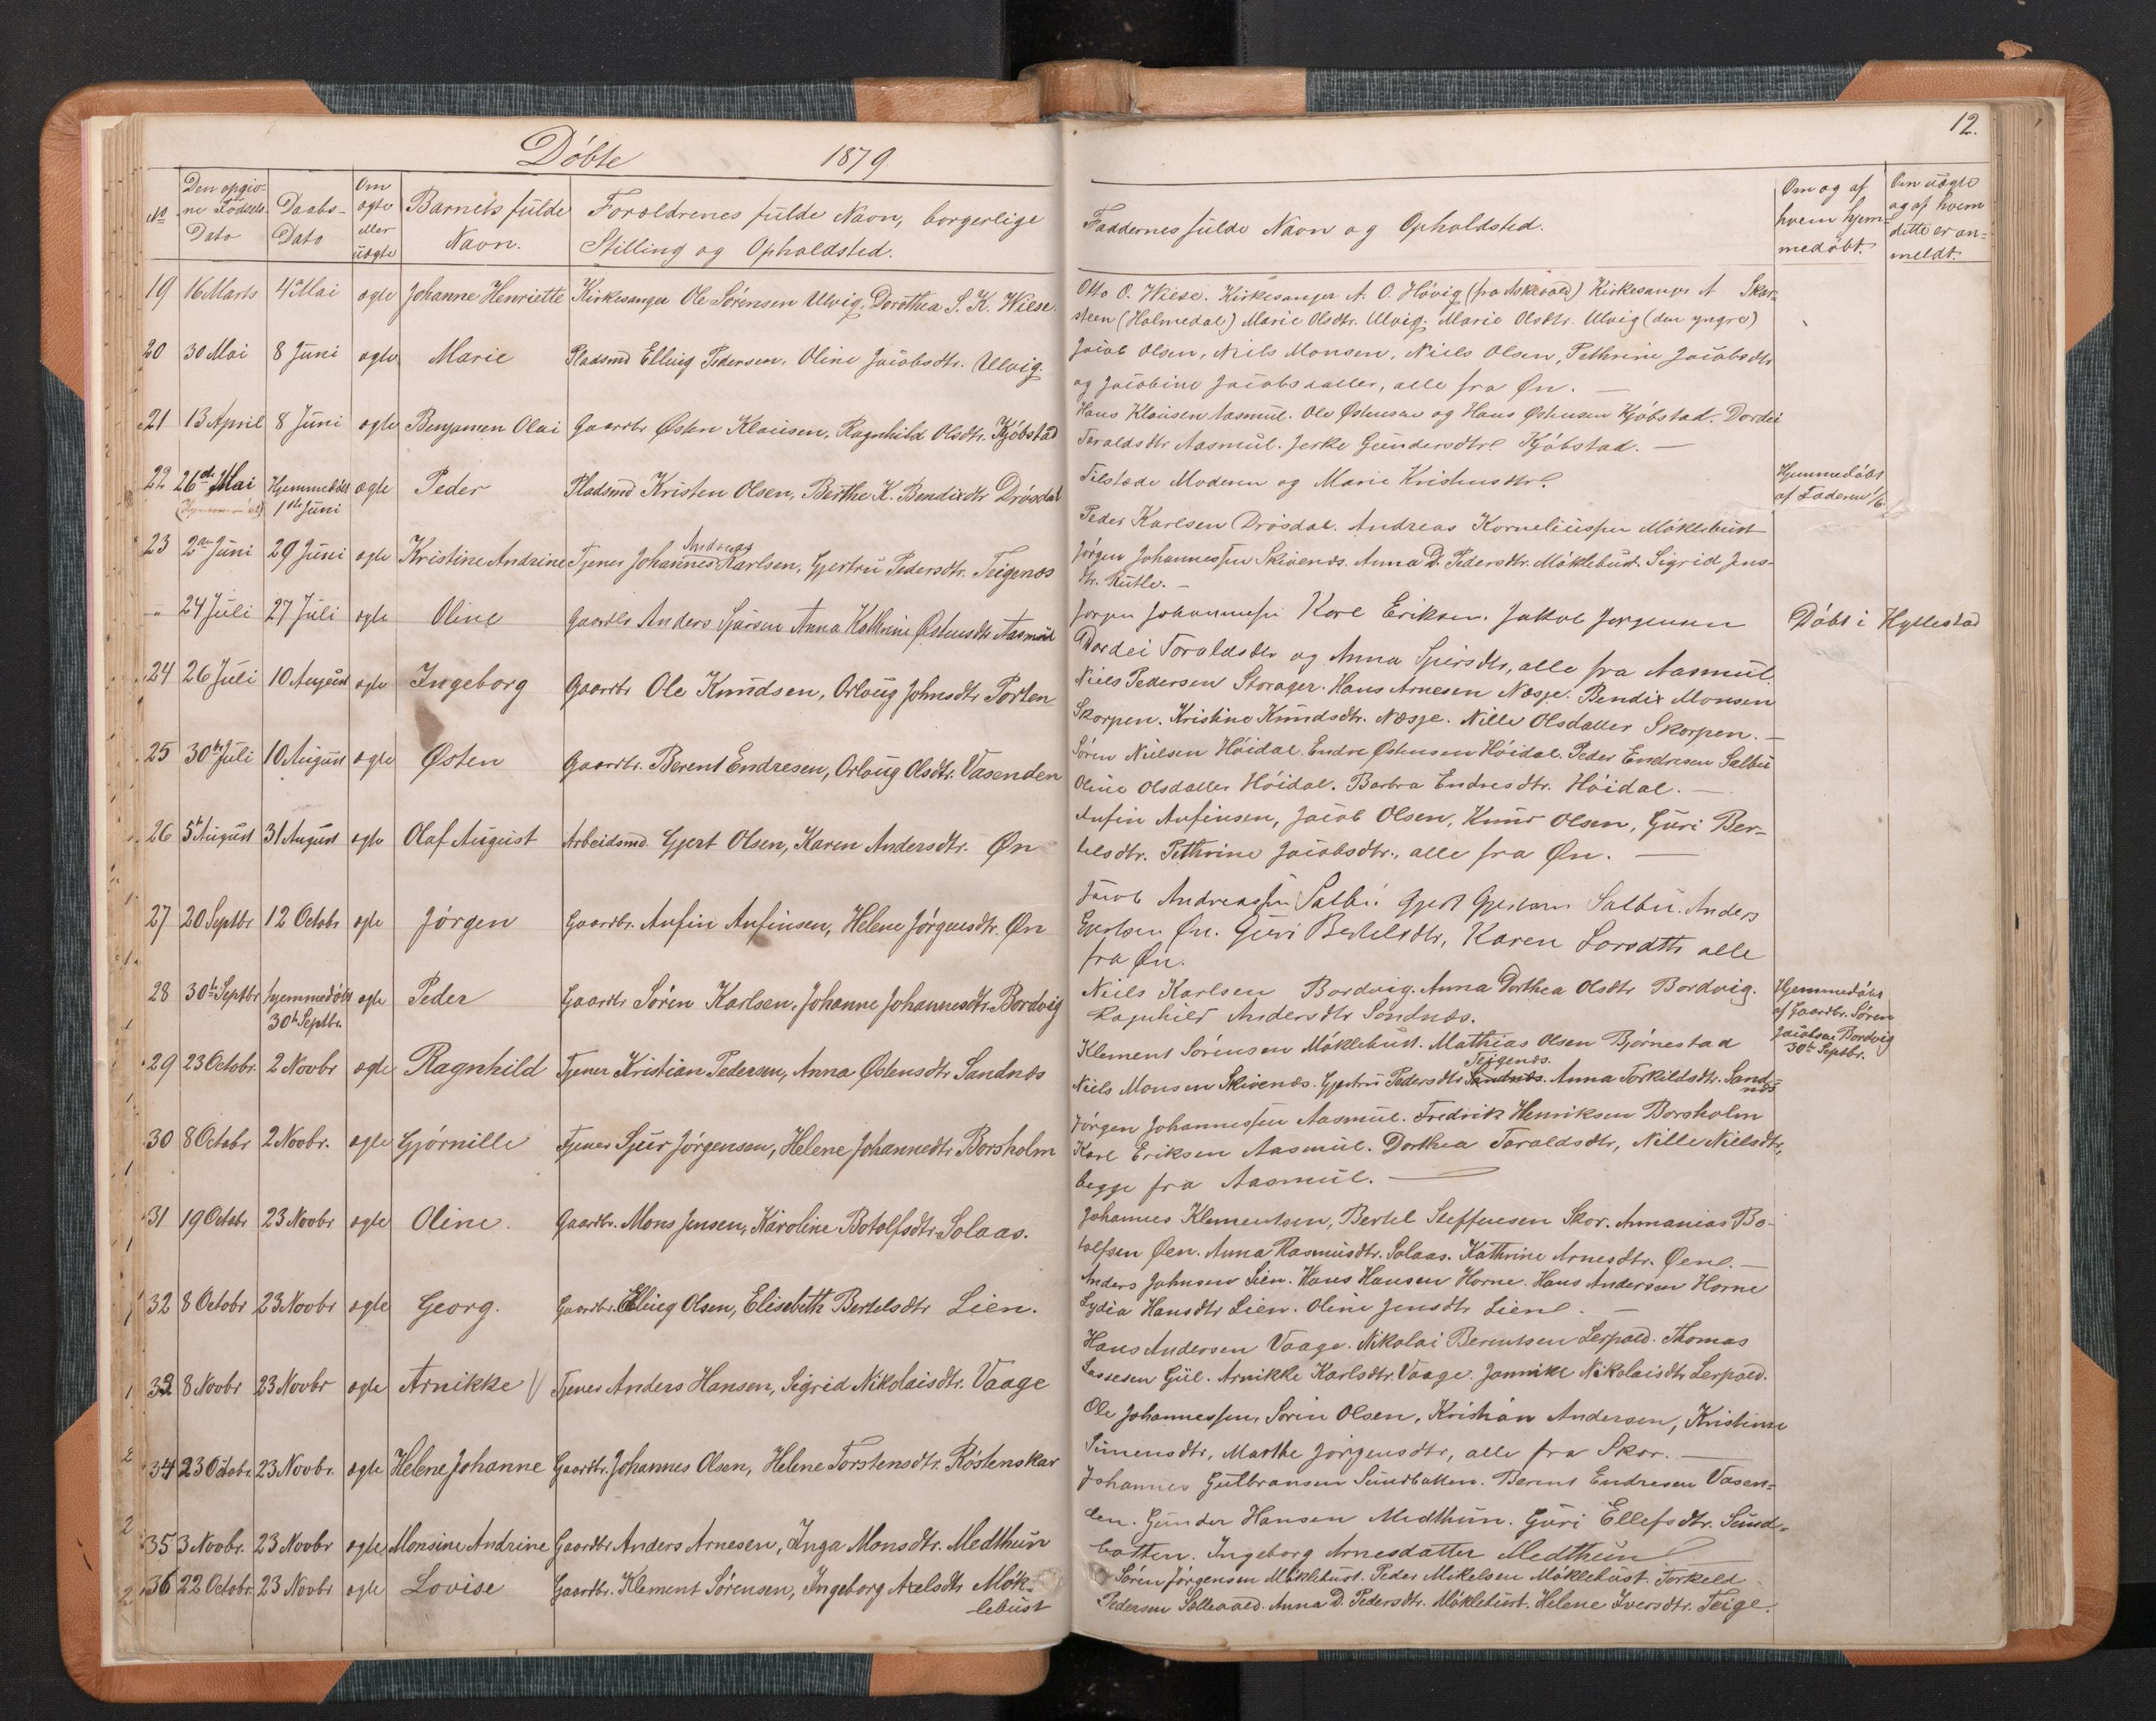 Døbte 1879
12.
No
Den opgiv-
ne Fødsels-
Dato
Daabs-
Dato
Om
ægte
eller
uægte
Barnets fulde
Navn.
Forældrenes fulde Navn, borgerlige
Stilling og Opholdsted.
Faddernes fulde Navn og Opholdsted.
Om og af
hvem hjem=
medøbt.
Om uægte
og af hvem
dette er an=
meldt.
19 16 Marts 4de Mai ægte Johanne Henriette Kirkesanger Ole Sørensen Ulvig, Dorothea S. K. Wiese.
Otto O. Wiese. Kirkesanger A. O. Høvig (fra Askevold) Kirkesanger A Skar-
steen (Holmedal) Marie Olsdtr. Ulvig. Marie Olsdtr. Ulvig (den yngre)
20 30 Mai 8 Juni ægte Marie Pladsmd Elling Pedersen, Oline Jacobsdtr. Ulvig.
Jacob Olsen, Niels Monsen, Niels Olsen, Pethrine Jacobsdtr
og Jacobine Jacobsdatter, alle fra Øn. —
21 13 April 8 Juni ægte Benjamen Olai Gaardbr Østen Klausen, Ragnhild Olsdtr. Kjøbstad
Hans Klausen Aasmul. Ole Østensen og Hans Østensen Kjøbstad. Dordei
Taraldsdtr Aasmul. Jerke Gundersdtr Kjøbstad. —
22 26de Mai Hjemmedøbt 1ste Juni ægte Peder Pladsmd Kristen Olsen, Berthe K. Bendixdtr Drøsdal
Tilstede Moderen og Marie Kristensdtr.
Hjemmedøbt
af Faderen 1/6.
23 2den Juni 29 Juni ægte Kristine Andrine Tjener Johannes Andreas Karlsen, Gjertru Pedersdtr. Teigenæs
Peder Karlsen Drøsdal. Andreas Korneliussen Møklebust
Jørgen Johannessen Skivenæs. Anna D. Pedersdtr. Møklebust. Sigrid Jens-
dtr. Kutle. —
" 24 Juli 27 Juli ægte Oline Gaardbr Anders Sjursen Anna Kathrine Østensdtr Aasmul
Jørgen Johannessen Karl Eriksen. Jakob Jørgensen
Dordei Taraldsdtr og Anna Spirsdtr, alle fra Aasmul.
Døbt i Hyllestad
24 26 Juli 10 August ægte Ingeborg Gaardbr Ole Knudsen, Orloug Johnsdtr Porten
Niels Pedersen Storager. Hans Arnesen Næsje. Bendix Monsen
Skorpen. Kristine Knudsdtr. Næsje. Nille Olsdatter Skorpen. —
25 30te Juli 10 August ægte Østen Gaardbr. Berent Endresen, Orloug Olsdtr. Vasenden
Søren Nielsen Høidal. Endre Østensen Høidal. Peder Endresen Salbu
Oline Olsdatter Høidal. Barbra Endresdtr. Høidal. —
26 5te August 31 August ægte Olaf August Arbeidsmd Gjert Olsen, Karen Andersdtr. Øn
Anfin Anfinsen, Jacob Olsen, Knud Olsen, Guri Ber-
telsdtr. Pethrine Jacobsdtr., alle fra Øn. —
27 20 Septbr 12 Octobr ægte Jørgen Gaardbr. Anfin Anfinsen, Helene Jørgensdtr. Øn
Jacob Andreassen Salbu Gjert Gjertsen Salbu. Anders
Gjertsen Øn. Guri Bertelsdtr, Karen Larsdttr alle
fra Øn.
28 30te Septbr hjemmedøbt 30te Septbr. ægte Peder Gaardbr Søren Karlsen, Johanne Johannesdtr. Bordvig
Niels Karlsen Bordvig. Anna Dorthea Olsdtr Bordvig.
Ragnhild Andersdtr Sandnæs.
Hjemmedøbt
af Gaardbr. Søren
Jacobsen Bordvig
30te Septbr.
29 23 Octobr. 2 Novbr ægte Ragnhild Tjener Kristian Pedersen, Anna Østensdtr Sandnæs
Klement Sørensen Møklebust. Mathias Olsen Bjørnestad
Niels Monsen Skivenæs. Gjertru Pedersdtr Sandnæs Teigenæs. Anna Torkildsdtr. Sand-
næs
30 8 Octobr 2 Novbr. ægte Gjørnille Tjener Sjur Jørgensen, Helene Johannedtr Borsholm
Jørgen Johannessen Aasmul. Fredrik Henriksen Borsholm
Karl Eriksen Aasmul. Dorthea Taraldsdtr, Nille Nielsdtr,
begge fra Aasmul. —
31 19 Octobr 23 Novbr ægte Oline. Gaardbr. Mons Jensen, Karoline Botolfsdtr Solaas.
Johannes Klementsen, Bertel Steffensen Skor. Annanias Bo-
tolfsen Øen. Anna Rasmusdtr. Solaas. Kathrine Arnesdtr. Øen. —
32 8 Octobr 23 Novbr ægte Georg. Gaardbr. Elling Olsen, Elisabeth Bertelsdtr Lien.
Anders Johnsen Lien. Hans Hansen Horne. Hans Andersen Horne
Lydia Hansdtr Lien. Oline Jensdtr Lien. —
33 8 Novbr 23 Novbr ægte Arnikke Tjener Anders Hansen, Sigrid Nikolaisdtr. Vaage
Hans Andersen Vaage. Nikolai Berentsen Lerpold. Thomas
Lassesen Gül. Arnikke Karlsdtr. Vaage. Jannike Nikolaisdtr Lerpold.
34 23 Octobr. 23 Novbr. ægte Helene Johanne Gaardbr. Johannes Olsen, Helene Torstensdtr. Røstenskar
Ole Johannessen, Søren Olsen, Kristian Andersen, Kristine
Simensdtr, Marthe Jørgensdtr, alle fra Skor. —
35 3 Novbr. 23 Novbr ægte Monsine Andrine Gaardbr Anders Arnesen, Inga Monsdtr. Medthun
Johannes Gulbransen Sundbotten. Berent Endresen Vasen=
den. Gunder Hansen Medthun. Guri Ellefsdtr. Sund-
botten. Ingeborg Arnesdatter Medthun
36 22 Octobr. 23 Novbr ægte Lovise Gaardbr. Klement Sørensen, Ingeborg Axelsdtr Møk-
lebust
Søren Jørgensen Møklebust. Peder Mikelsen Møklebust. Torkeld
Pedersen Sollevold. Anna D. Pedersdtr. Møklebust. Helene Iversdtr. Teige.